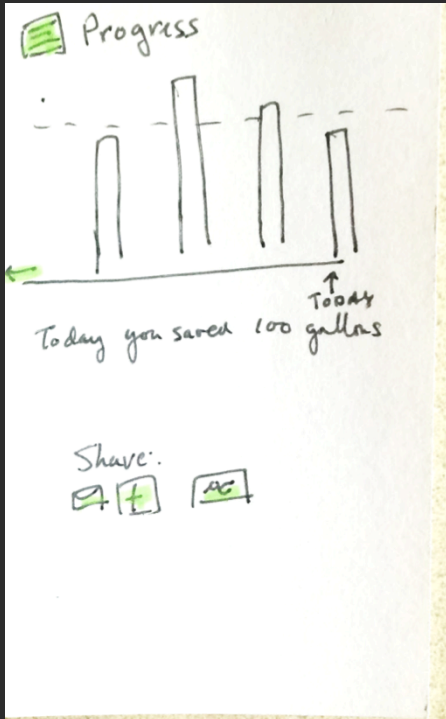 Progress
TODAY
Today you saved 100 gallons
Share: